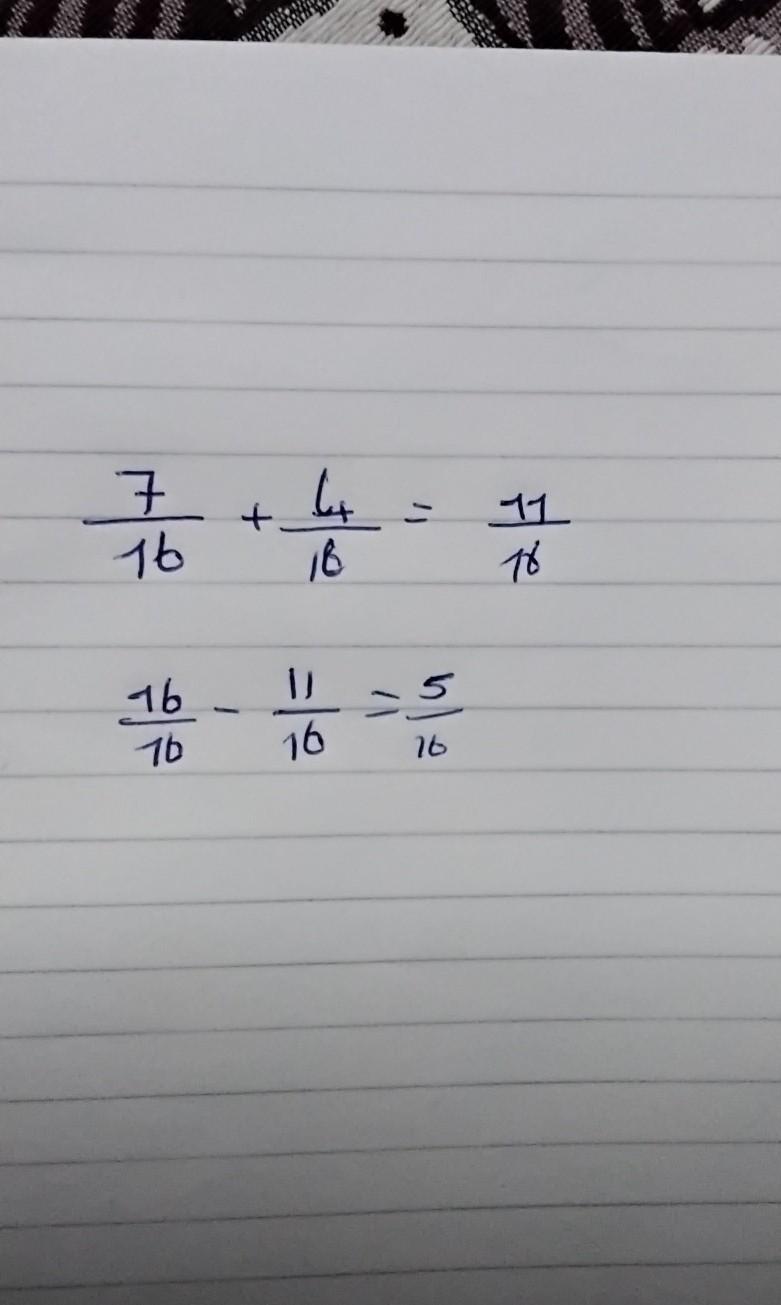 7/16 + 4/16 = 11/16
16/16 - 11/16 = 5/16